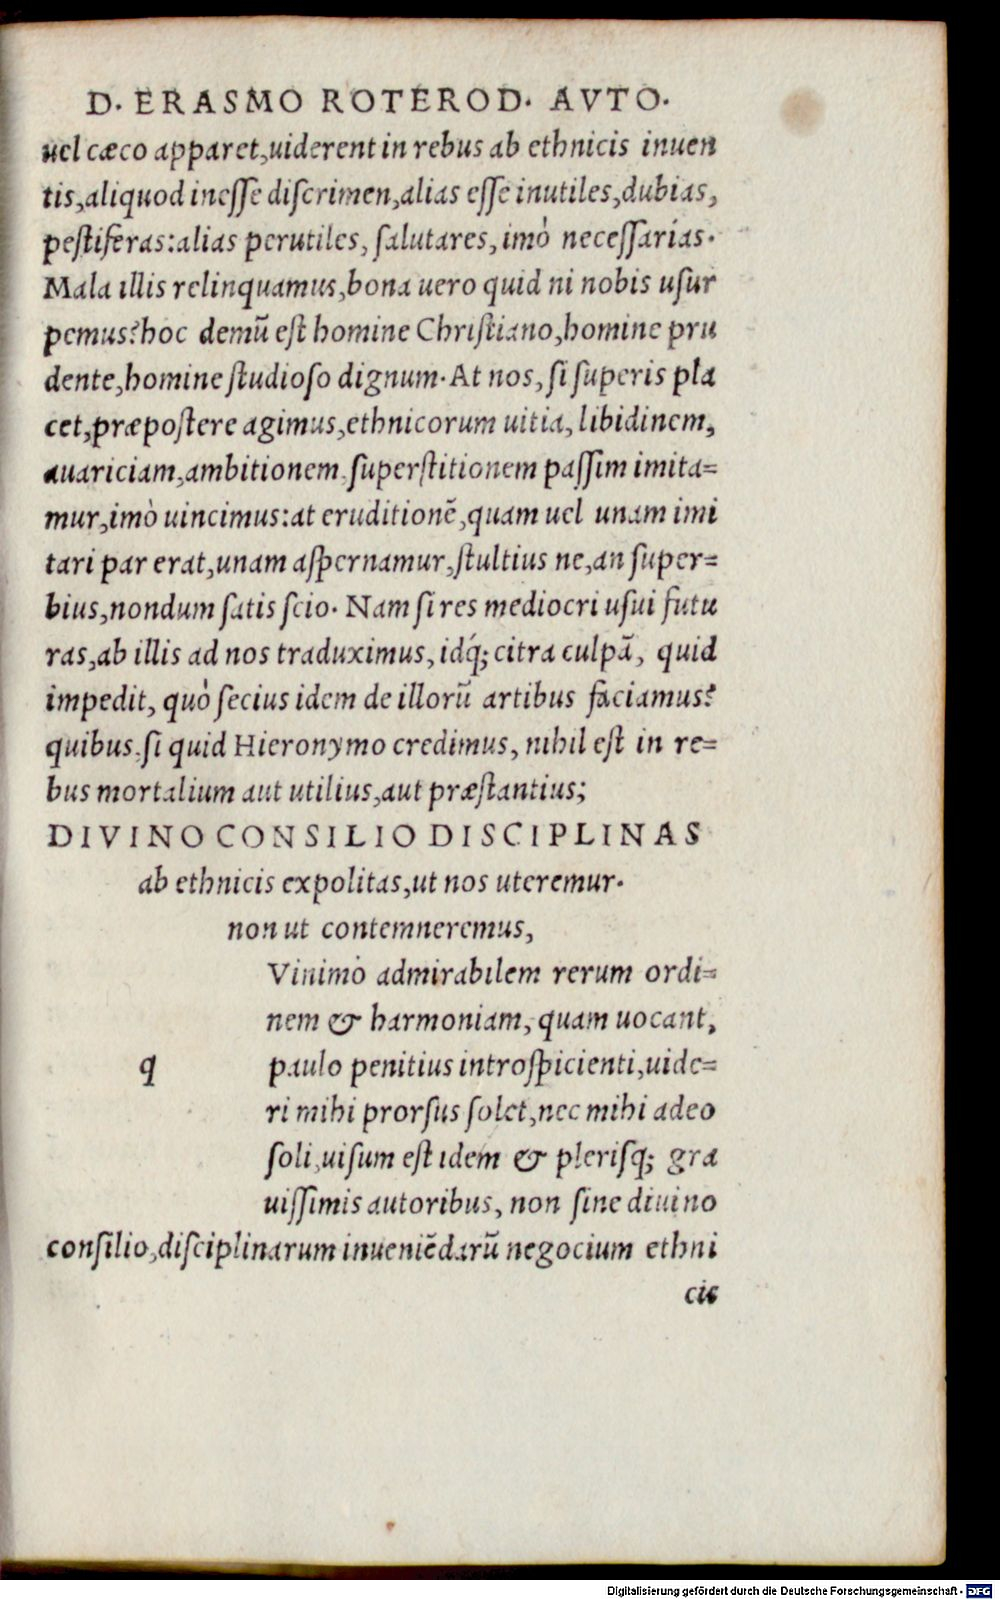 D. ERASMO ROTEROD. AVTO.
uel cæco apparet,uiderent in rebus ab ethnicis inuen
tis,aliquod inesse discrimen,alias esse inutiles,dubias,
pestiferas:alias perutiles, salutares, imò necessarias.
Mala illis relinquamus,bona uero quid ni nobis usur
pemus? hoc demū est homine Christiano,homine pru
dente,homine studioso dignum. At nos, si superis pla
cet,præpostere agimus,ethnicorum uitia, libidinem,
auariciam,ambitionem,superstitionem passim imita=
mur,imò uincimus:at eruditionē,quam uel unam imi
tari par erat,unam aspernamur,stultius ne,an super=
bius,nondum satis scio. Nam si res mediocri usui futu
ras,ab illis ad nos traduximus, idq́; citra culpā, quid
impedit, quò secius idem de illorū artibus faciamus?
quibus,si quid Hieronymo credimus, nihil est in re=
bus mortalium aut utilius,aut præstantius;
DIVINO CONSILIO DISCIPLINAS
ab ethnicis expolitas,ut nos uteremur.
non ut contemneremus,
q Vinimò admirabilem rerum ordi=
nem & harmoniam, quam uocant,
paulo penitius introspicienti,uide=
ri mihi prorsus solet,nec mihi adeo
soli,uisum est idem & plerisq; gra
uissimis autoribus, non sine diuino
consilio,disciplinarum inueniēdarū negocium ethni
cis
Digitalisierung gefördert durch die Deutsche Forschungsgemeinschaft - DFG